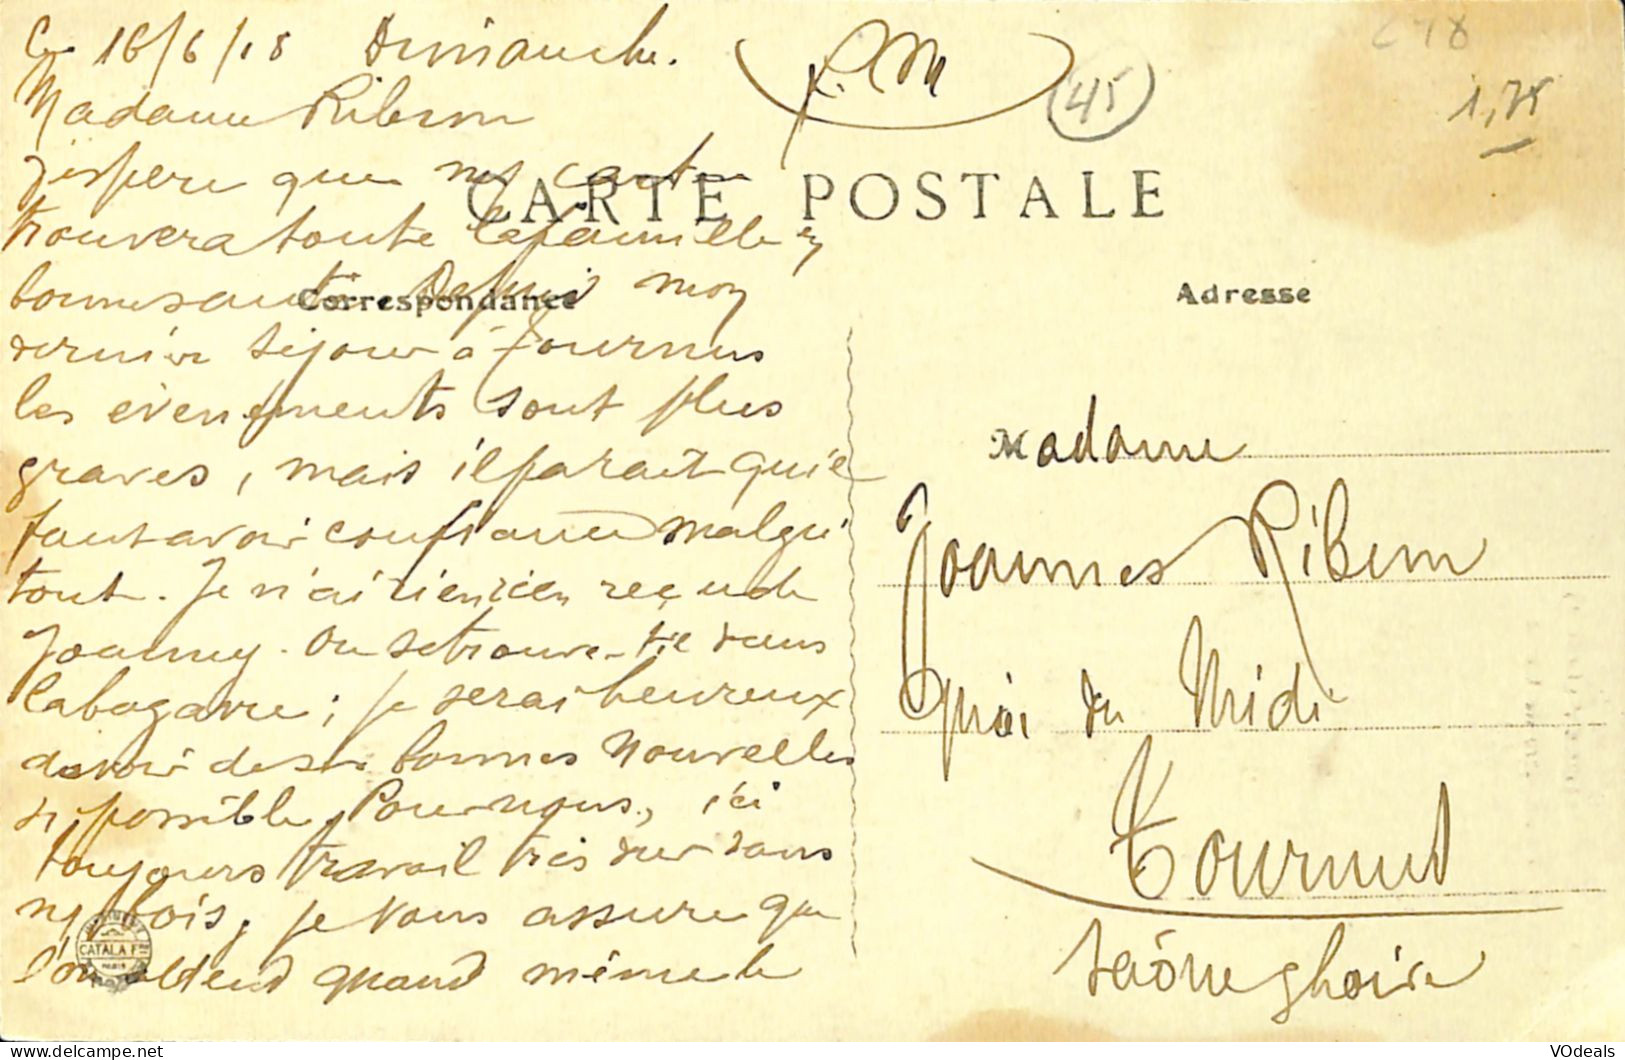 Ce 16/6/18 Dimanche.
F. M
45
1,75
Madame Riberon
J'espere que mes cartes
CARTE POSTALE
trouvera toute la famille en
bonne santé. Depuis mon
Correspondance
Adresse
dernier séjour à Tournus
les évenements sont plus
graves, mais il parait qu'il
faut avoir confiance malgré
tout. Je n'ai rien reçu de
Joanny. Ou se trouve-t-il dans
la bagarre; je serai heureux
d'avoir de ses bonnes nouvelles
si possible. Pour nous, ici
toujours travail très dur dans
nos bois, je vous assure que
l'on attend quand même le
Madame
Joannes Riberon
Quai du Midi
Tournus
Saône & Loire
CATALA Fres
PARIS
VOdeals